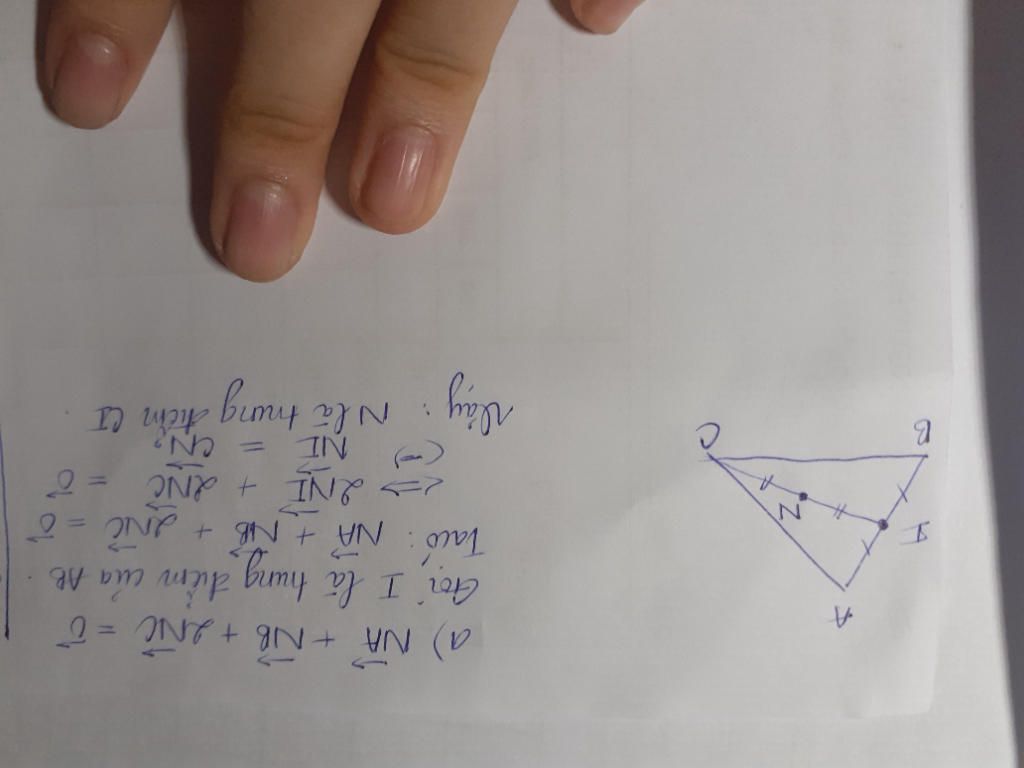 a) NA→ + NB→ + 2NC→ = 0→
Gọi I là trung điểm của AB.
Ta có: NA→ + NB→ + 2NC→ = 0→
<=> 2NI→ + 2NC→ = 0→
(=) NI→ = CN→
Vậy: N là trung điểm CI.
A
I
N
B
C